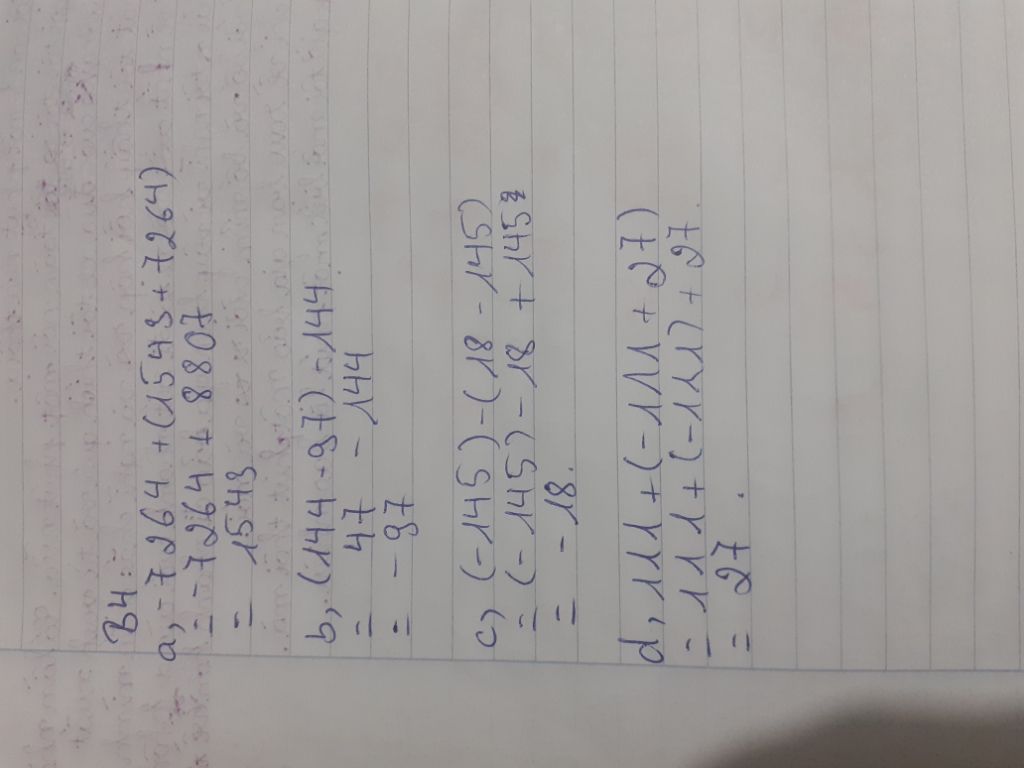 B4:
a, -7264 + (1543 + 7264)
= -7264 + 8807
= 1543
b, (144 - 97) - 144
= 47 - 144
= -97
c, (-145) - (18 - 145)
= (-145) - 18 + 145
= -18.
d, 111 + (-111 + 27)
= 111 + (-111) + 27.
= 27.